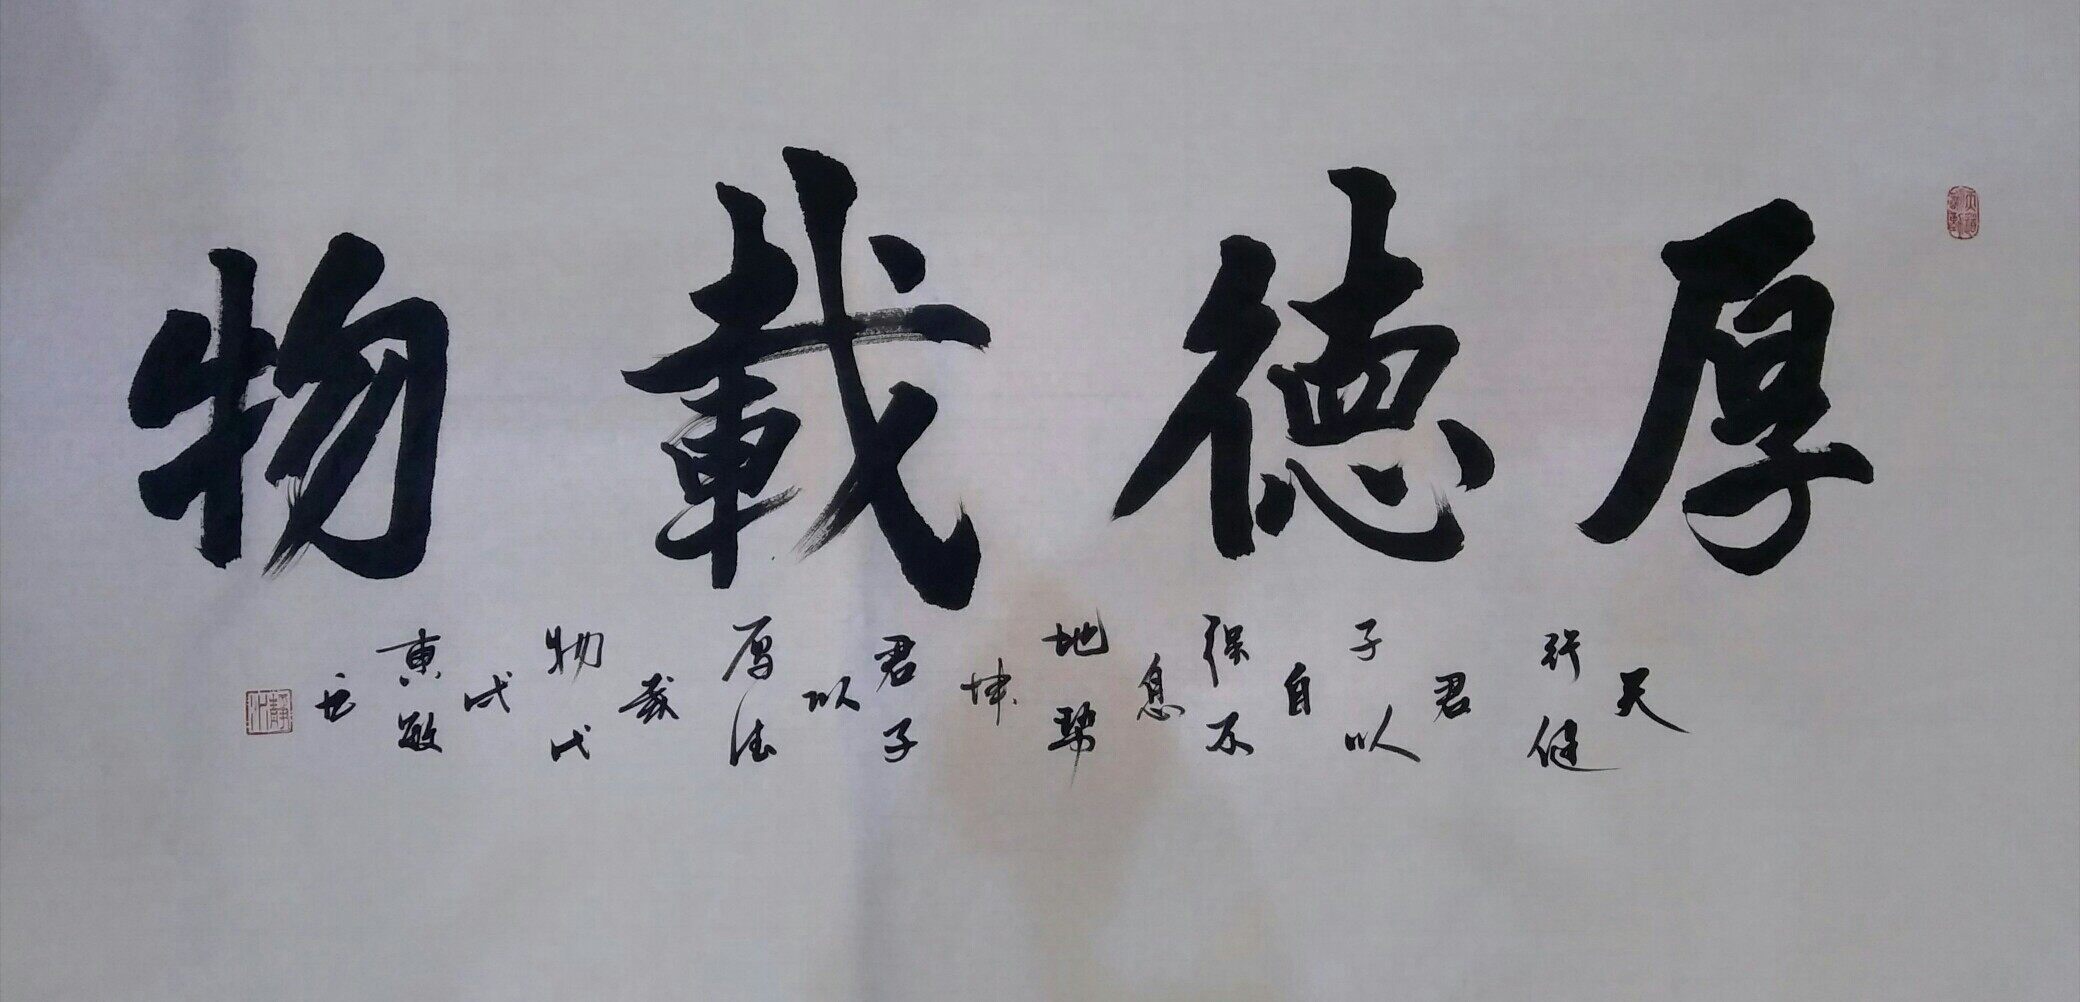 厚德載物
天行健君子以自强不息地势坤君子以厚德载物戊戌
東敏书